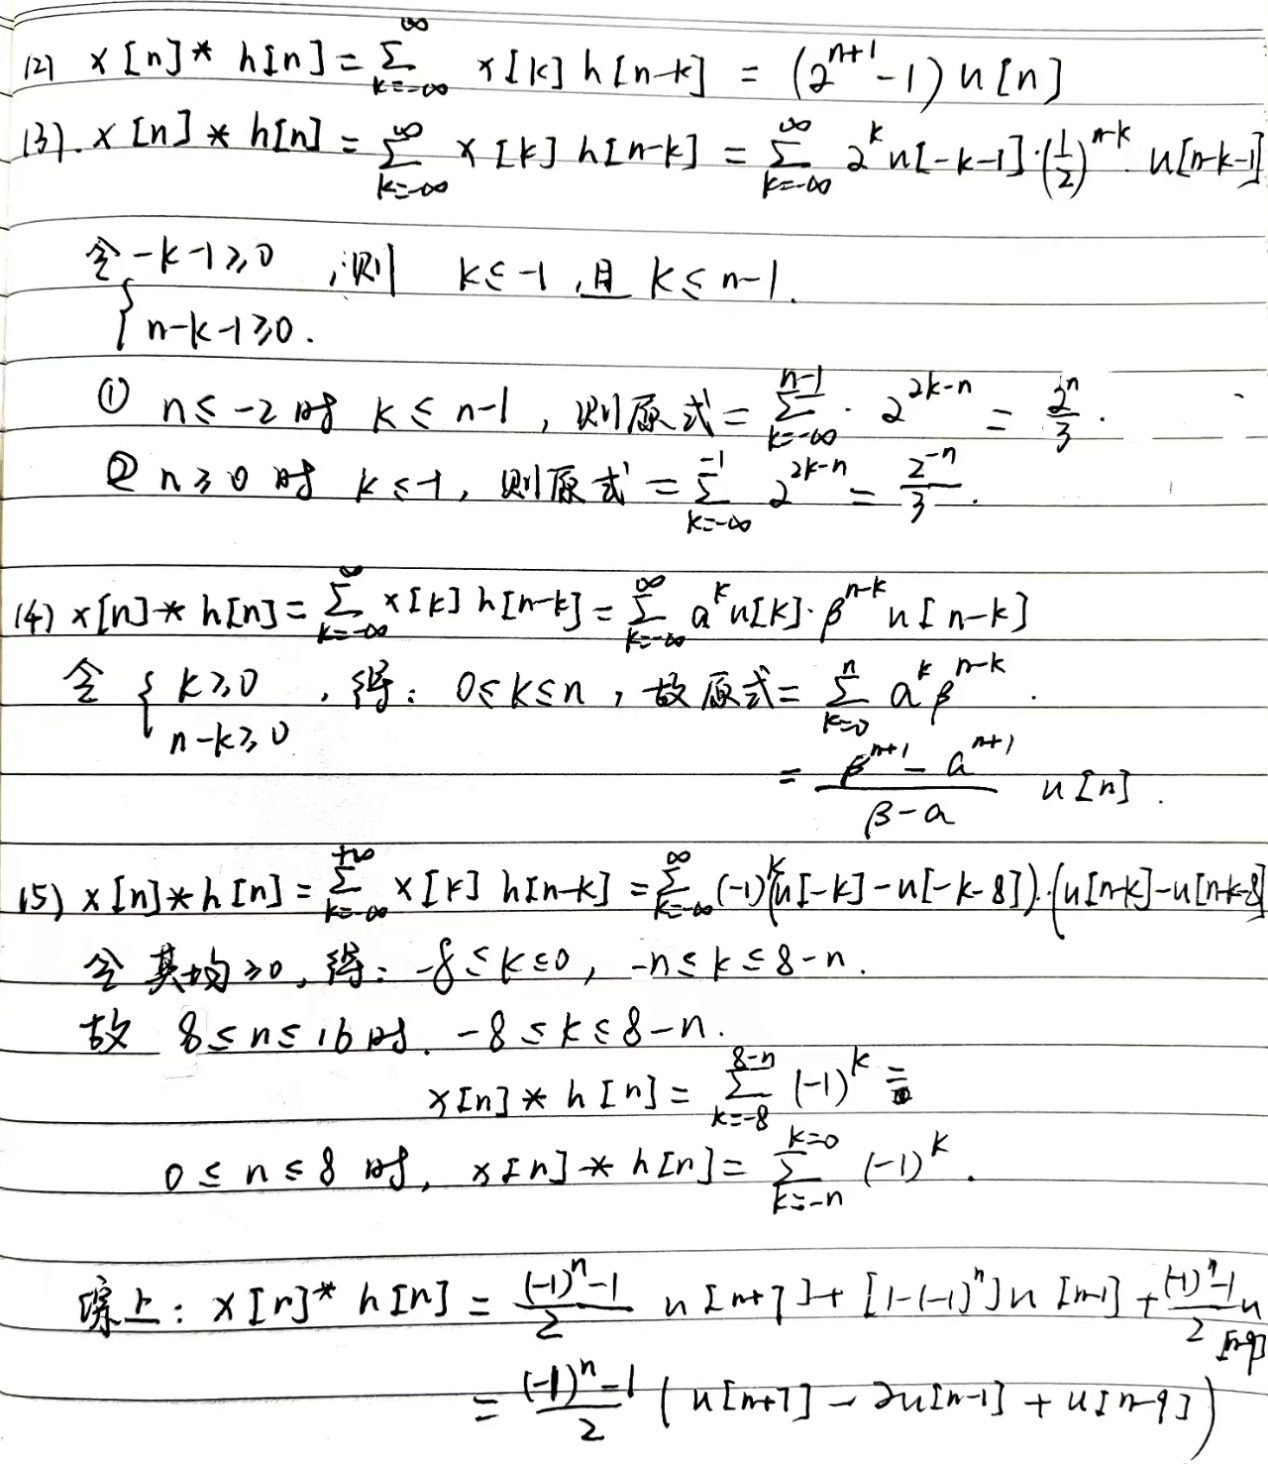 (2) x[n]* h[n]=∑_{k=-∞}^{∞} x[k] h[n-k] = (2^{n+1}-1) u[n]
(3). x[n]* h[n]=∑_{k=-∞}^{∞} x[k] h[n-k] = ∑_{k=-∞}^{∞} 2^k u[-k-1]·(1/2)^{n-k} u[n-k-1]
令 { -k-1≥0 , 则 k≤-1 ,且 k≤n-1.
n-k-1≥0.
① n≤-2时 k≤n-1, 则原式=∑_{k=-∞}^{n-1} · 2^{2k-n} = 2^n/3 .
② n≥0时 k≤-1, 则原式=∑_{k=-∞}^{-1} 2^{2k-n} = 2^{-n}/3 .
(4) x[n]* h[n]=∑_{k=-∞}^{∞} x[k] h[n-k]=∑_{k=-∞}^{∞} a^k u[k]·β^{n-k} u[n-k]
令 { k≥0 , 得: 0≤k≤n, 故原式=∑_{k=0}^{n} a^k β^{n-k} .
n-k≥0
= (β^{n+1} - a^{n+1})/(β-a) u[n] .
(5) x[n]*h[n]=∑_{k=-∞}^{+∞} x[k] h[n-k] =∑_{k=-∞}^{∞} (-1)^k (u[-k]-u[-k-8])·(u[n-k]-u[n-k-8]
令其均≥0, 得: -8≤k≤0, -n≤k≤8-n.
故 8≤n≤16时. -8≤k≤8-n.
x[n]* h[n]= ∑_{k=-8}^{8-n} (-1)^k =
0≤n≤8时, x[n]* h[n]= ∑_{k=-n}^{k=0} (-1)^k .
综上: x[n]* h[n] = ((-1)^n-1)/2 u[n+7]+ [1-(-1)^n]u[n-1] + ((-1)^n-1)/2 u[n-9]
= ((-1)^n-1)/2 (u[n+7] - 2u[n-1] + u[n-9])